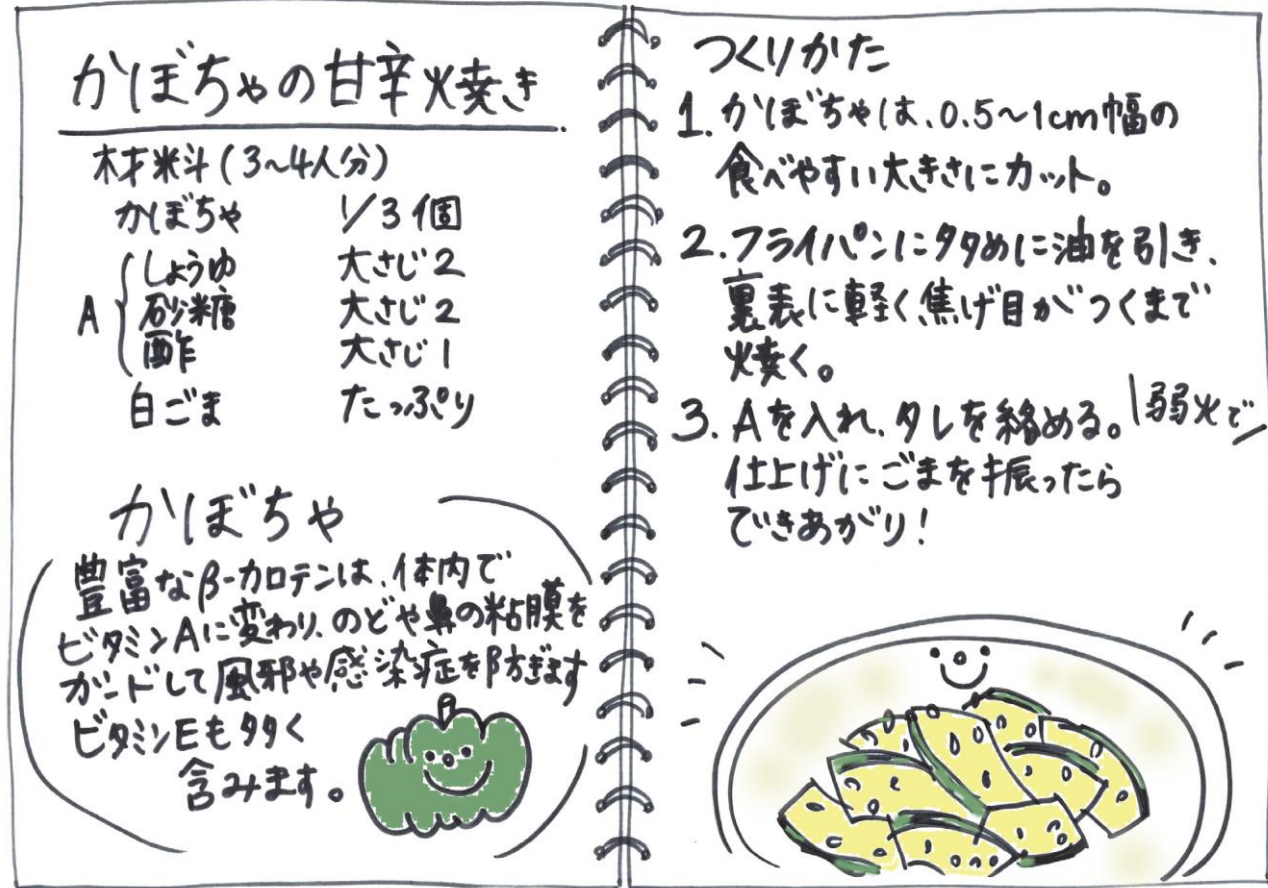 かぼちゃの甘辛焼き
材料(3~4人分)
かぼちゃ 1/3個
A しょうゆ 大さじ2
砂糖 大さじ2
酢 大さじ1
白ごま たっぷり
かぼちゃ
豊富なβ-カロテンは、体内で
ビタミンAに変わり、のどや鼻の粘膜を
ガードして風邪や感染症を防ぎます
ビタミンEも多く
含みます。
つくりかた
1. かぼちゃは、0.5~1cm幅の
食べやすい大きさにカット。
2. フライパンに多めに油を引き、
裏表に軽く焦げ目がつくまで
焼く。
3. Aを入れ、タレを絡める。 弱火で
仕上げにごまを振ったら
できあがり!